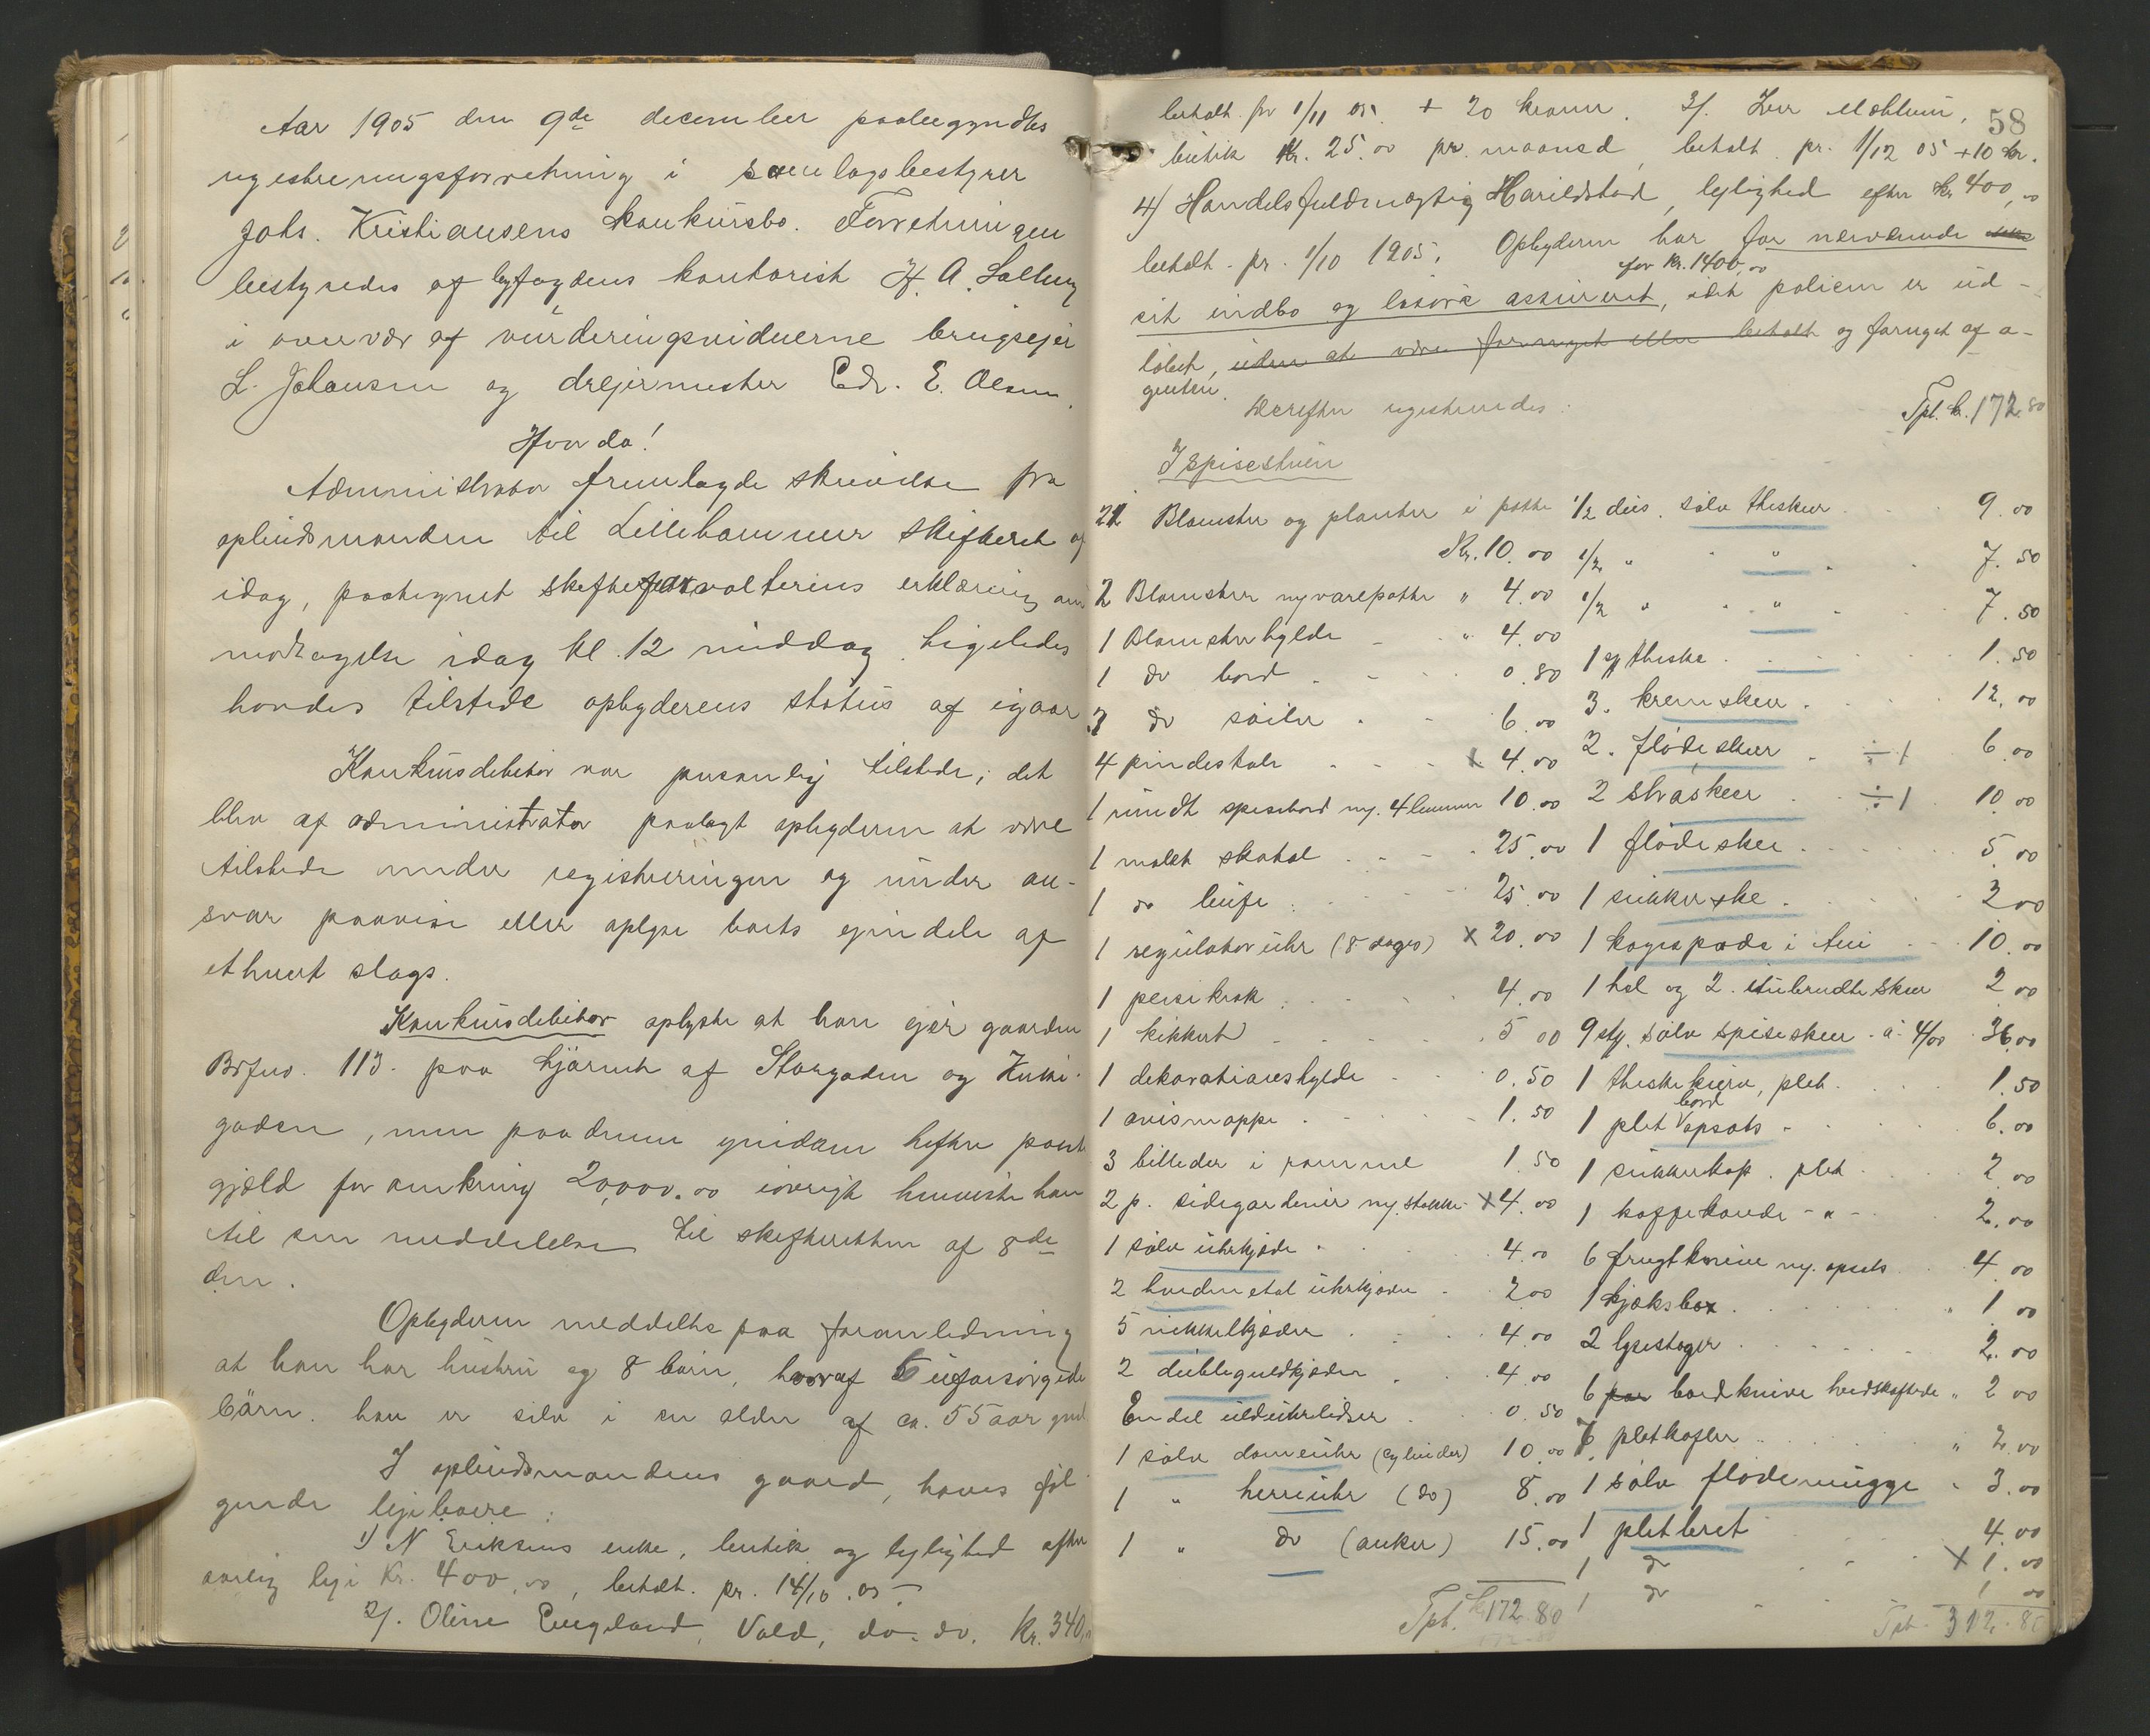 Aar 1905 den 9de december paabegyndtes
registreringsforretning i samlagsbestyrer
Johs. Kristiansens konkursbo. Forretningen
bestyredes af byfogdens kontorist H. A.
i overvær af vurderingsvidnerne brugseier
L. Johansen og dreiermester Edv. E. Olsen.
Hvorda!
Administrator fremlagde skrivelse fra
opbudsmanden til Lillehammer skifteret af
idag, paategnet skifteforvalterens erklæring om
modtagelse idag kl. 12 middag. Ligeledes
havdes tilstede opbyderens status af igaar
Konkursdebitor var personlig tilstede; det
blev af administrator paalagt opbyderen at være
tilstede under registreringen og under an-
svar paavise eller oplyse boets eiendele af
ethvert slags.
Konkursdebitor oplyste at han eier gaarden
Brfno. 113. paa hjørnet af Storgaden og
gaden, men paa denne eiendom hefter pante
gjæld for omkring 20,000.00 iøvrigt henviste han
til sin meddelelse til skifteretten af 8de
dm.
Opbyderen meddelte paa foranledning
at han har hustru og 8 børn, hvoraf 5 uforsørgede
børn. han er selv i en alder af ca. 55 aar
I opbudsmandens gaard, haves føl-
gende leieboere:
1) N Eriksens enke, butik og leilighed efter
aarlig leie Kr. 400,00, betalt. pr. 14/10. 05.
2). Oline Engeland, Vold, do. do. Kr. 340,
58
betalt. pr 1/11 05. + 20 kroner. 3).
butik Kr. 25.00 pr. maaned, betalt pr. 1/12 05 + 10 kr.
4) Handelsfuldmægtig Harildstad, leilighed efter kr 400,00
betalt. pr. 1/10 1905. Opbyderen har for nærværende
for kr. 1400,00
sit indbo og løsøre assureret, idet policen er ud-
løbet, uden at være fornyet eller betalt og fornyet af a-
genten.
Derefter registreredes:
Tpt. kr. 172.80
I Spisestuen
21 Blomster og planter i potte
Kr. 10.00
2 Blomster m/varepotte " 4.00
1 Blomsterhylde - " 4.00
1 do bord 0.80
3 do søiler 6.00
4 pindestole x 4.00
1 rundt spisebord m/ 4 lemmer 10.00
1 malet skatol 25.00
1 do buffe 25.00
1 regulatoruhr (8 dages) x 20.00
1 peisekrok 4.00
1 kikkert 5 00
1 dekorationshylde 0.50
1 avismappe 1.50
3 billeder i ramme 1.50
2 p. sidegardiner m/ stokke x 4.00
1 sølv uhrkjede 4.00
2 hvidmetal uhrkjeder 2.00
5 nikkelkjeder 4.00
2 doubleguldkjeder 4.00
En del uhrlidser 0.50
1 sølv dameuhr (cylinder) 10.00
1 " herreuhr (do) 8.00
1 " do (anker) 15.00
Tpt. kr 172.80
1/2 dus. sølv theskeer 9.00
1/2 " " " 7.50
1/2 " " " 7.50
1 theske 1.50
3. kremskeer 12.00
2. flødeskeer ÷ 1 6.00
2 strøskeer ÷ 1 10.00
1 flødeske 5.00
1 sukkerske 3 00
1 kagespade i etui 10.00
1 hel og 2. itubrudte skeer 2 00
9 stg. sølv spiseskeer a 4/00 36.00
1 theskekurv, plet 1.50
1 plet bordopsats 6.00
1 sukkerkop. plet 2.00
1 kaffekande - " - 2.00
6 frugtknive m/ opsats 4.00
1 kjeksbox 1.00
2 lysestager 2.00
6 par bordknive hvidskaftede " 2 00
6 pletgafler " 2.00
1 sølv flødemugge 3.00
1 pletbret 4.00
1 do x 1.00
1 do 1 00
Tpt. 312.80